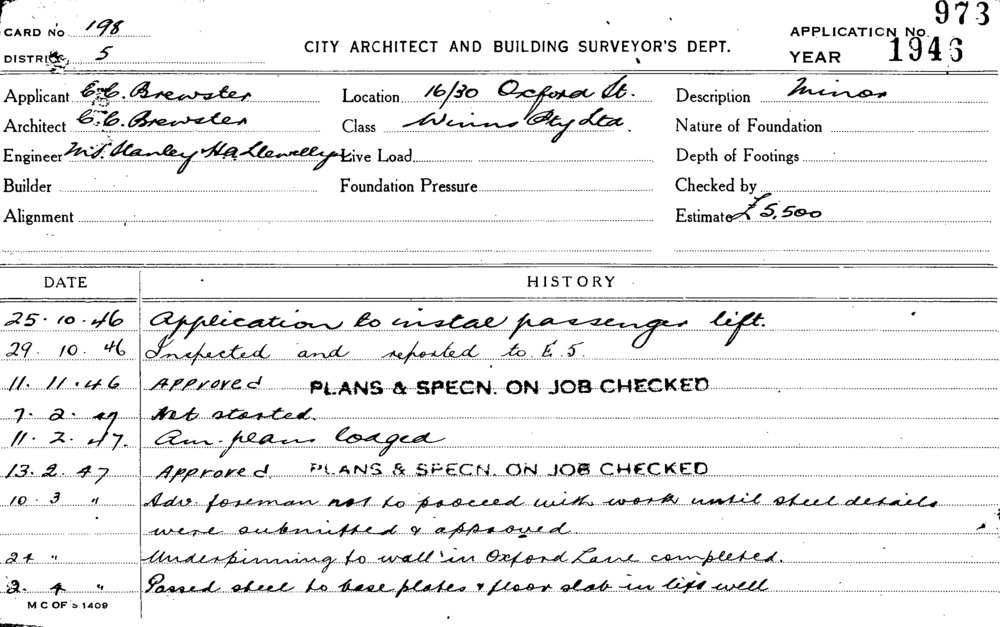 CARD No 198
DISTRICT 5
CITY ARCHITECT AND BUILDING SURVEYOR'S DEPT.
APPLICATION No. 973
YEAR 1946
Applicant C.C. Brewster
Location 16/30 Oxford St.
Description Minor
Architect C.C. Brewster
Class Winns Pty Ltd.
Nature of Foundation
Engineer Stanley H.A. Llewellyn
Live Load
Depth of Footings
Builder
Foundation Pressure
Checked by
Alignment
Estimate £5,500
DATE HISTORY
25.10.46 Application to instal passenger lift.
29.10.46 Inspected and reported to E.5.
11.11.46 Approved PLANS & SPECN. ON JOB CHECKED
7.2.47 Not started.
11.2.47. Am. plans lodged
13.2.47 Approved. PLANS & SPECN. ON JOB CHECKED
10.3 " Adv. foreman not to proceed with work until steel details
were submitted & approved.
24 " Underpinning to wall in Oxford Lane completed.
2.4 " Passed steel to base plates & floor slab in lift well
M C OF S 1409